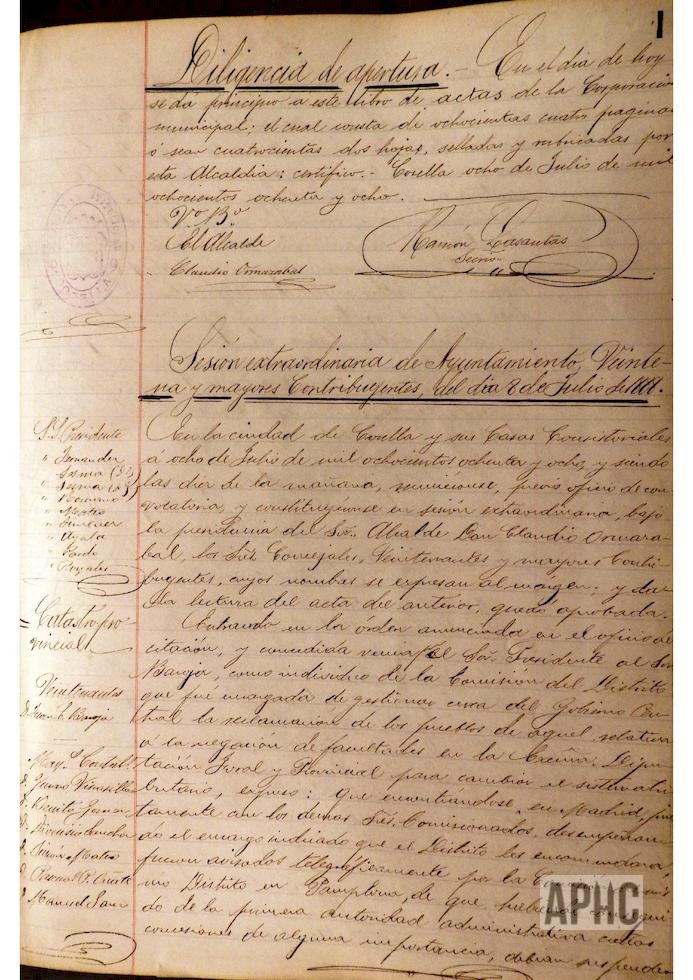 1
Diligencia de apertura.- En el dia de hoy
se dá principio a este libro de actas de la Corporacion
municipal; el cual consta de ochocientas cuatro paginas
ó sean cuatrocientas dos hojas, selladas y rubricadas por
esta Alcaldia: certifico.- Corella ocho de Julio de mil
ochocientos ochenta y ocho.
Vº Bº
El Alcalde
Claudio Ormazabal
Ramón Lasantas
Secrio
Sesión extraordinaria de Ayuntamiento, Veinte-
na y mayores Contribuyentes, del dia 8 de Julio de 1888.
S. S. Presidente
" Fernandez
" Romano
" Mateo
" Jimenez
" Ayala
Catastro pro
vincial
Veintenantes
D. Juan C. Baroja
May.s Contrib.s
D. Dionisio Sanchez
D. Simón Mateo
D. Manuel Sanz
En la ciudad de Corella y sus Casas Consistoriales
á ocho de Julio de mil ochocientos ochenta y ocho, y siendo
las diez de la mañana, reunieronse, previo oficio de con-
vocatoria, y constituyeronse en sesión extraordinaria, bajo
la presidencia del Sr. Alcalde Don Claudio Ormaza-
bal, los Sres. Concejales, Veintenantes y mayores Contri-
buyentes, cuyos nombres se expresan al márgen; y dada
la lectura del acta del anterior, quedó aprobada.
Entrando en la órden anunciada en el oficio de
citación, y concedida venia pr. el Sor. Presidente al Sor
Baroja, como individuo de la Comision del Distrito
que fué encargada de gestionar cerca del Gobierno Cen-
tral la reclamación de los pueblos de aquel, relativa
á la negación de facultades en la Excma. Dipu-
tación Foral y Provincial para cambiar el sistema tri-
butario, expuso: que encontrándose en Madrid, jun
tamente con los demas Sres. Comisionados, desempeñan
do el encargo indicado que el Distrito les encomendara,
fueron avisados telegráficamente por la
mo Distrito en Pamplona, de que habiendo consegui
do de la primera autoridad administrativa ciertas
concesiones de alguna importancia, debian suspender
APHC